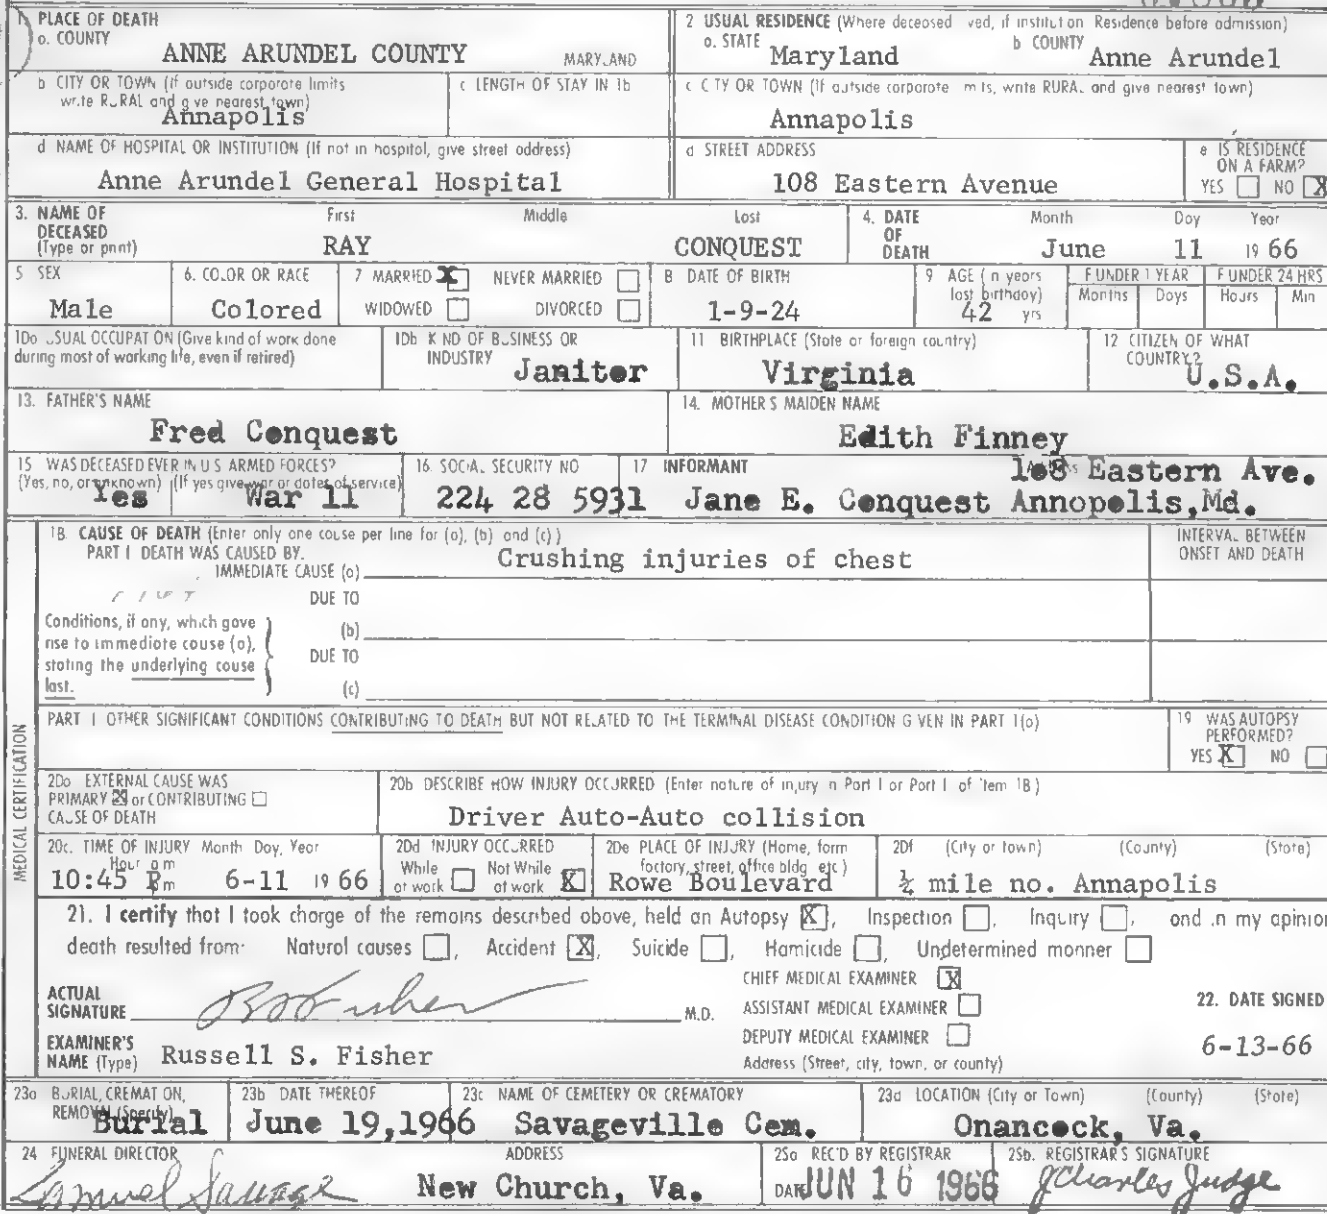 1. PLACE OF DEATH
a. COUNTY
ANNE ARUNDEL COUNTY MARYLAND
2 USUAL RESIDENCE (Where deceased ved, if institut on Residence before admission)
a. STATE Maryland b COUNTY Anne Arundel
b CITY OR TOWN (If outside corporate limits
write RURAL and give nearest town)
Annapolis
c LENGTH OF STAY IN 1b
c CITY OR TOWN (If outside corporate m ts, write RURAL and give nearest town)
Annapolis
d NAME OF HOSPITAL OR INSTITUTION (If not in hospital, give street address)
Anne Arundel General Hospital
d STREET ADDRESS
108 Eastern Avenue
e IS RESIDENCE
ON A FARM?
YES NO X
3. NAME OF
DECEASED
(Type or print)
First Middle Last
RAY CONQUEST
4. DATE
OF
DEATH
Month Day Year
June 11 19 66
5 SEX
Male
6. COLOR OR RACE
Colored
7 MARRIED X NEVER MARRIED
WIDOWED DIVORCED
8 DATE OF BIRTH
1-9-24
9 AGE (In years
last birthday)
42 yrs
F UNDER 1 YEAR
Months Days
F UNDER 24 HRS
Hours Min
10a USUAL OCCUPATION (Give kind of work done
during most of working life, even if retired)
10b KIND OF BUSINESS OR
INDUSTRY Janitor
11 BIRTHPLACE (State or foreign country)
Virginia
12 CITIZEN OF WHAT
COUNTRY?
U.S.A.
13. FATHER'S NAME
Fred Conquest
14. MOTHER'S MAIDEN NAME
Edith Finney
15 WAS DECEASED EVER IN U S ARMED FORCES?
(Yes, no, or unknown) (If yes give war or dates of service)
Yes War 11
16. SOCIAL SECURITY NO
224 28 5931
17 INFORMANT
108 Eastern Ave.
Jane E. Conquest Annopolis,Md.
MEDICAL CERTIFICATION
18. CAUSE OF DEATH (Enter only one cause per line for (a), (b) and (c))
PART I DEATH WAS CAUSED BY.
IMMEDIATE CAUSE (a) Crushing injuries of chest
INTERVAL BETWEEN
ONSET AND DEATH
DUE TO
Conditions, if any, which gave
rise to immediate cause (a),
stating the underlying cause
last.
(b)
DUE TO
(c)
PART I OTHER SIGNIFICANT CONDITIONS CONTRIBUTING TO DEATH BUT NOT RELATED TO THE TERMINAL DISEASE CONDITION GIVEN IN PART I(a)
19 WAS AUTOPSY
PERFORMED?
YES X NO
20a EXTERNAL CAUSE WAS
PRIMARY X or CONTRIBUTING
CAUSE OF DEATH
20b DESCRIBE HOW INJURY OCCURRED (Enter nature of injury in Part I or Part I of Item 18)
Driver Auto-Auto collision
20c. TIME OF INJURY Month Day, Year
Hour a m
10:45 P m 6-11 19 66
20d INJURY OCCURRED
While at work Not While at work X
20e PLACE OF INJURY (Home, farm
factory, street, office bldg etc)
Rowe Boulevard
20f (City or town) (County) (State)
½ mile no. Annapolis
21. I certify that I took charge of the remains described above, held an Autopsy X, Inspection , Inquiry , and in my opinion
death resulted from: Natural causes , Accident X, Suicide , Homicide , Undetermined manner
CHIEF MEDICAL EXAMINER X
ACTUAL
SIGNATURE R S Fisher M.D.
ASSISTANT MEDICAL EXAMINER
DEPUTY MEDICAL EXAMINER
22. DATE SIGNED
6-13-66
EXAMINER'S
NAME (Type) Russell S. Fisher
Address (Street, city, town, or county)
23a BURIAL, CREMATION,
REMOVAL (Specify)
Burial
23b DATE THEREOF
June 19,1966
23c NAME OF CEMETERY OR CREMATORY
Savageville Cem.
23d LOCATION (City or Town) (County) (State)
Onancock, Va.
24 FUNERAL DIRECTOR ADDRESS
Samuel Savage New Church, Va.
25a REC'D BY REGISTRAR
DATE JUN 16 1966
25b. REGISTRAR'S SIGNATURE
J Charles Judge